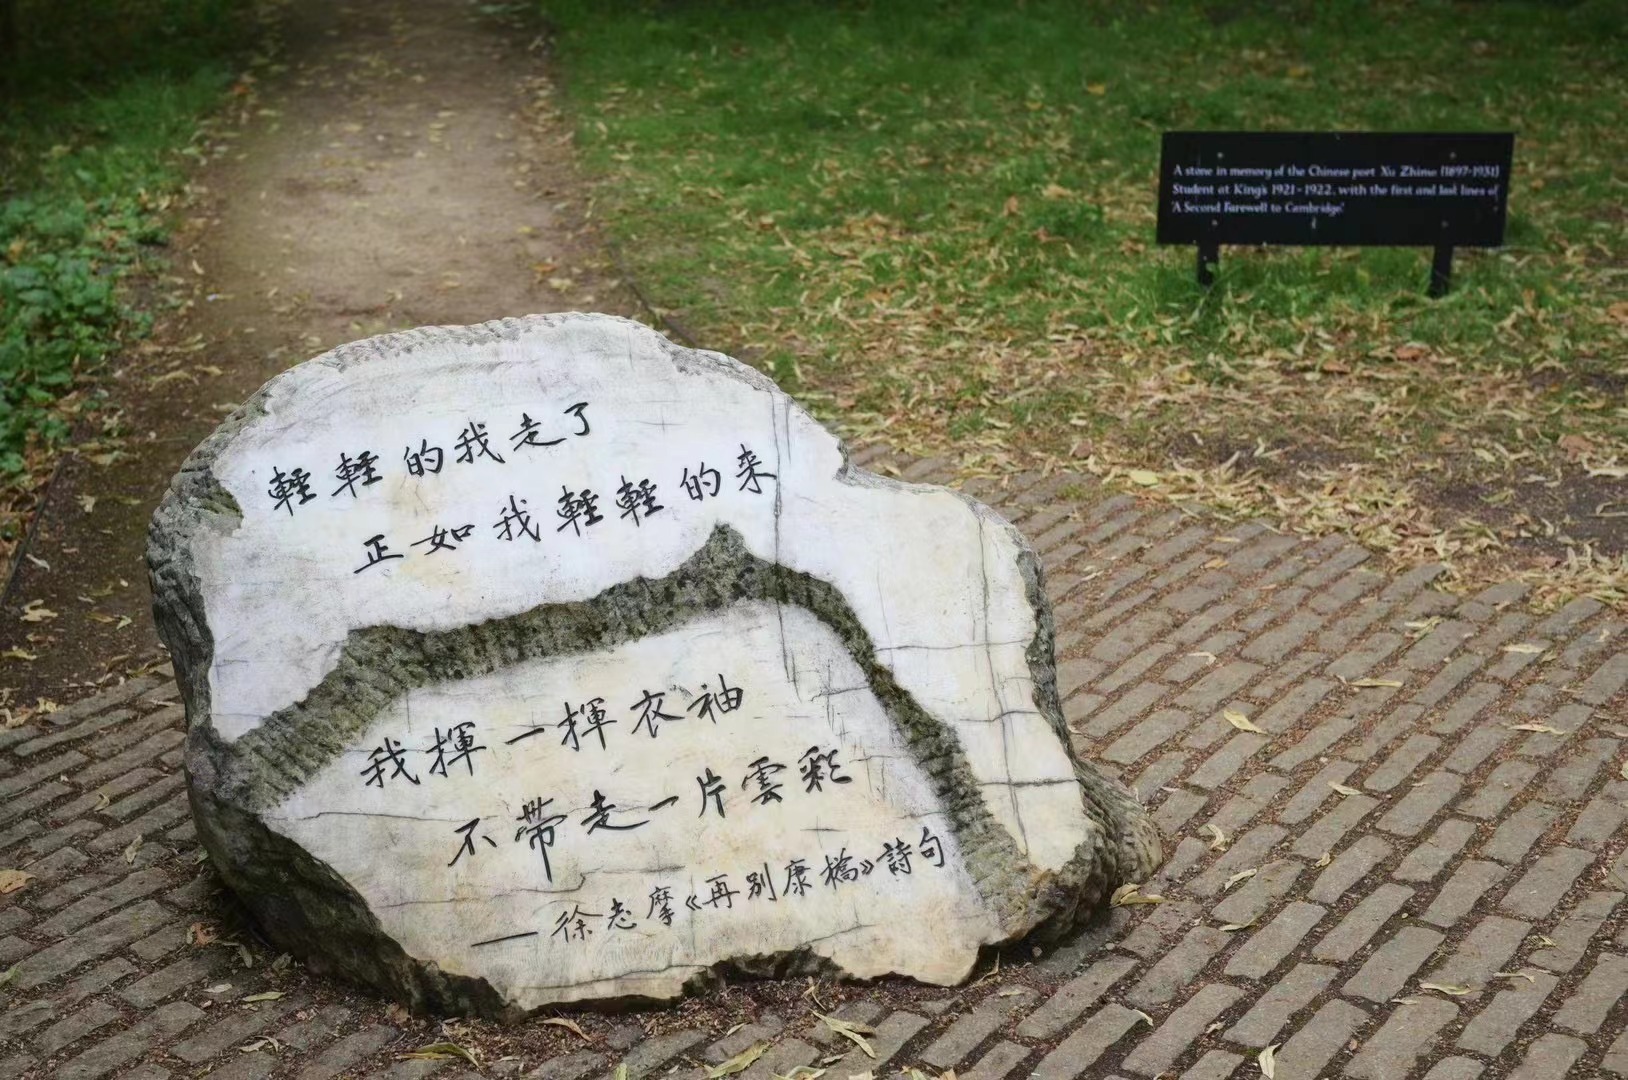 輕輕的我走了
正如我輕輕的来
我揮一揮衣袖
不帶走一片雲彩
——徐志摩《再別康橋》詩句
A stone in memory of the Chinese poet Xu Zhimo (1897-1931)
Student at King's 1921-1922, with the first and last lines of
'A Second Farewell to Cambridge'